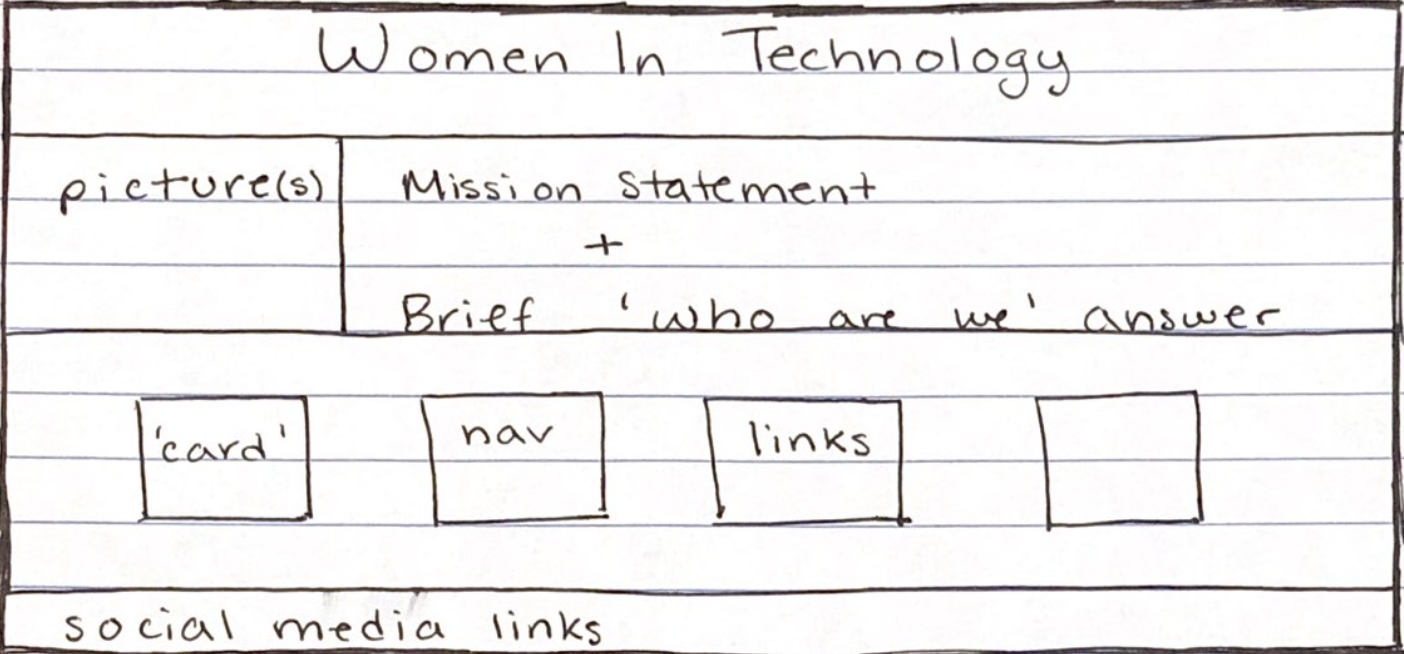 Women In Technology
picture(s)
Mission Statement
+
Brief 'who are we' answer
'card'
nav
links
social media links